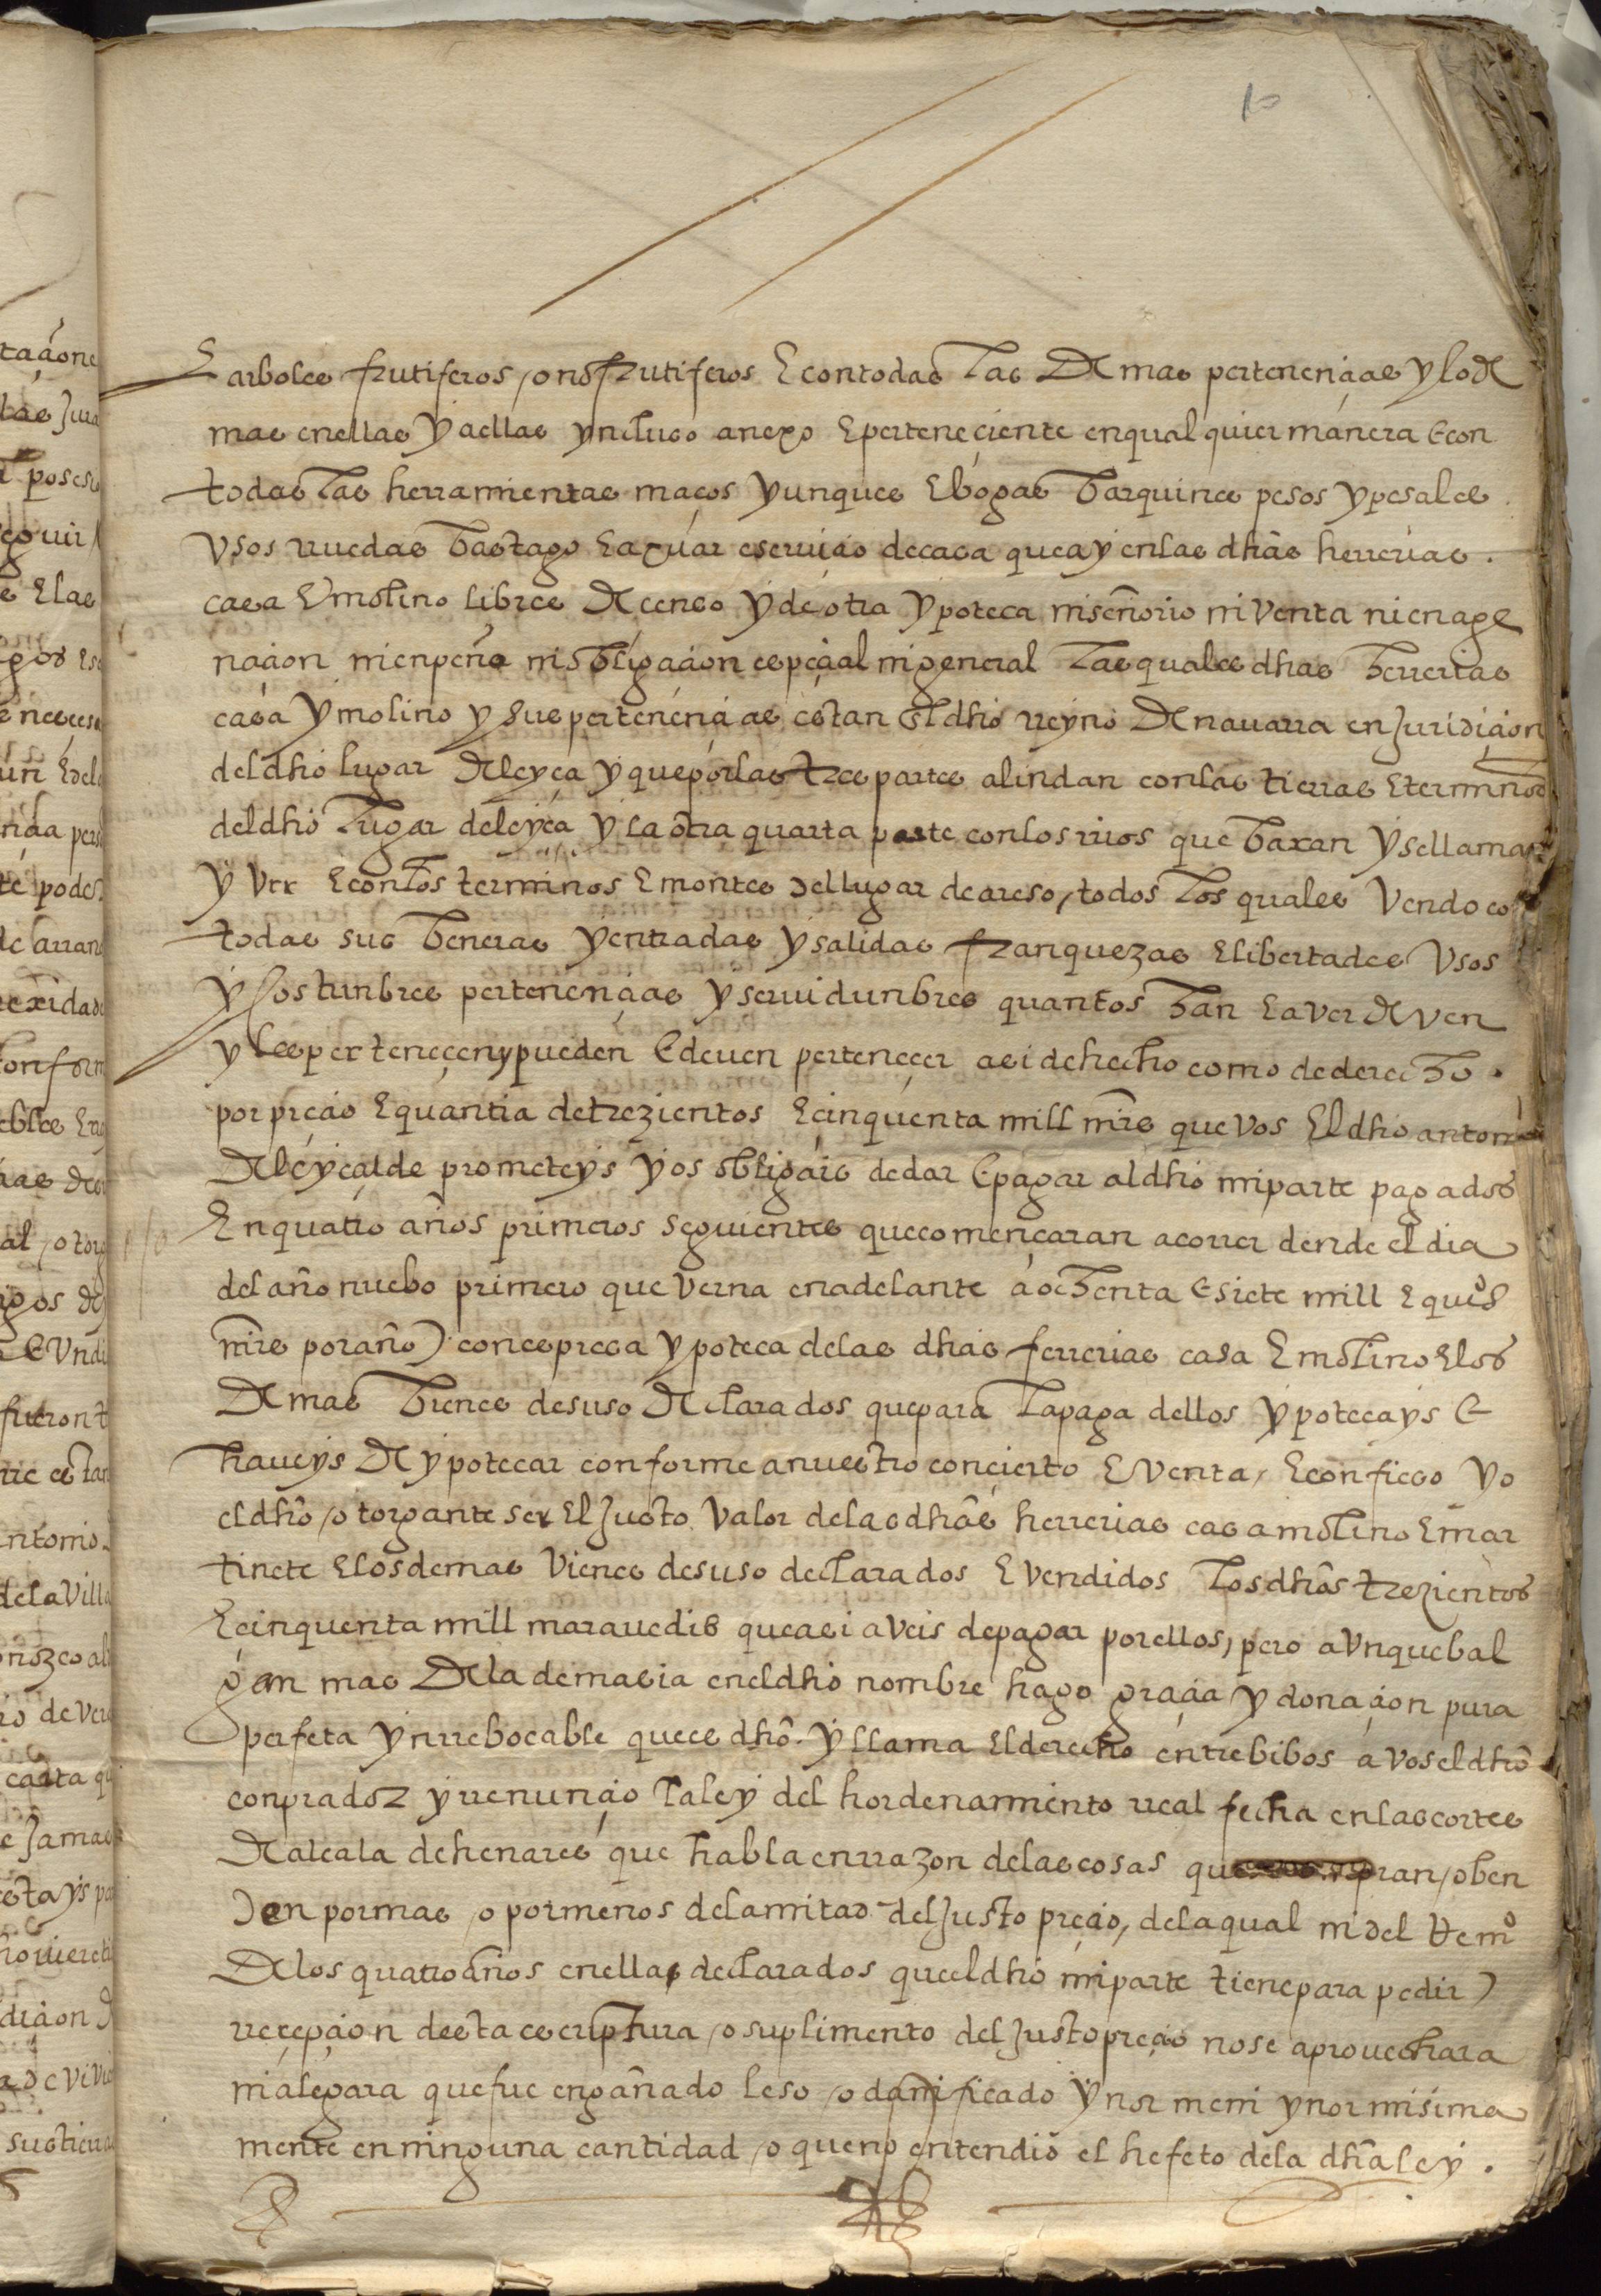 10
E arboles frutiferos, o no frutiferos E con todas las de mas pertenençias y lo de
mas en ellas y a ellas yncluso anexo E perteneçiente en qual quier manera E con
todas las herramientas maços yunques E bogas barquines pesos y pesales
Usos rruedas bastago E axuar e seruiçio de casa que ay en las dhas herrerias.
casa E molino libres de censo y de otra ypoteca ni señorio ni venta ni enage
naçion ni enpeño ni obligaçion espeçial ni general las quales dhas herrerias
casa y molino y sus pertenençias estan el dho rreyno de nauarra en Juridiçion
del dho lugar de leyça y que por las tres partes alindan con las tierras E terminos
del dho lugar de leyça y la otra quarta parte con los rrios que baxan y se llaman
y Urr E con los terminos E montes del lugar de areso, todos los quales Vendo co
todas sus heneras y entradas y salidas franquezas E libertades Usos
y costunbres pertenençias y seruidunbres quantos han E aver deven
y les perteneçen y pueden E deuen perteneçer asi de hecho como de derecho.
por preçio E quantia de trezientos E cinquenta mill mrs que vos El dho antoni
de leyçalde prometeys y os obligais de dar E pagar al dho mi parte pagados
En quatro años primeros seguientes que començaran a correr dende el dia
del año nuebo primero que verna en adelante a ochenta E siete mill E quios
mrs por año) con espresa ypoteca de las dhas ferrerias casa E molino E los
de mas bienes desuso declarados que para la paga dellos ypotecays E
haveys de ypotecar conforme a nuestro conçierto E venta, E confieso yo
el dho, otorgante ser El Justo valor de las dhas herrerias casa molino E mar
tinete E los demas vienes desuso declarados E vendidos los dhos trezientos
E cinquenta mill marauedis que asi aveis de pagar por ellos, pero aunque bal
gan mas de la demasia en el dho nombre hago graçia y donaçion pura
perfeta ynrrebocable que es dho. y llama El derecho entre bibos a vos el dho
conprador y rrenunçio la ley del hordenamiento rreal fecha en las cortes
de alcala de henares que habla en rrazon de las cosas que se conpran, o ben
den por mas, o por menos de la mitad del Justo preçio, de la qual ni del tiemo
de los quatro años en ellas declarados que el dho mi parte tiene para pedir
rreçepçion desta escriptura, o suplimento del Justo preçio no se aprouechara
ni alegara que fue engañado leso, o danificado ynor meni ynormisima
mente en ninguna cantidad, o que no entendio el hefeto de la dha ley.